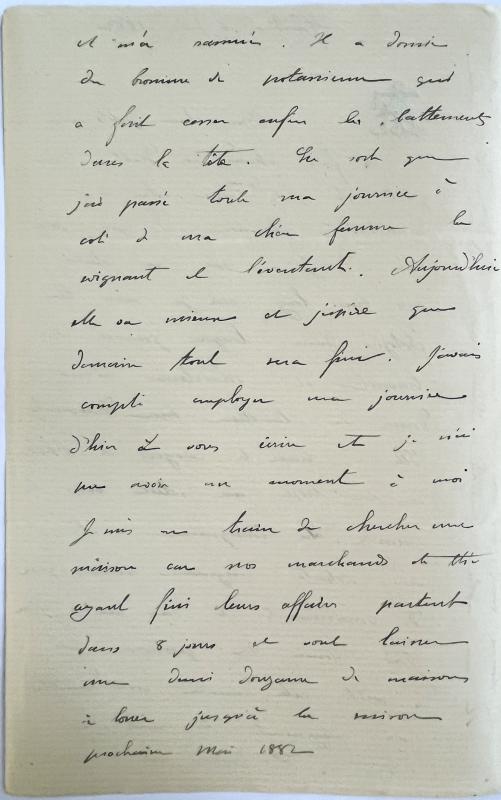 et m'a rassuré. Il a donné
du bromure de potassium qui
a fait cesser enfin les battements
dans la tête. De sorte que
j'ai passé toute ma journée à
coté de ma chère femme la
soignant et l'éventant. Aujourd'hui
elle va mieux et j'espère que
demain tout sera fini. J'avais
compté employer ma journée
d'hier à vous écrire et je n'ai
pu avoir un moment à moi
Je suis en train de chercher une
maison car nos marchands de thé
ayant fini leurs affaires partent
dans 8 jours et vont laisser
une demi douzaine de maisons
à louer jusqu'à la saison
prochaine Mai 1882